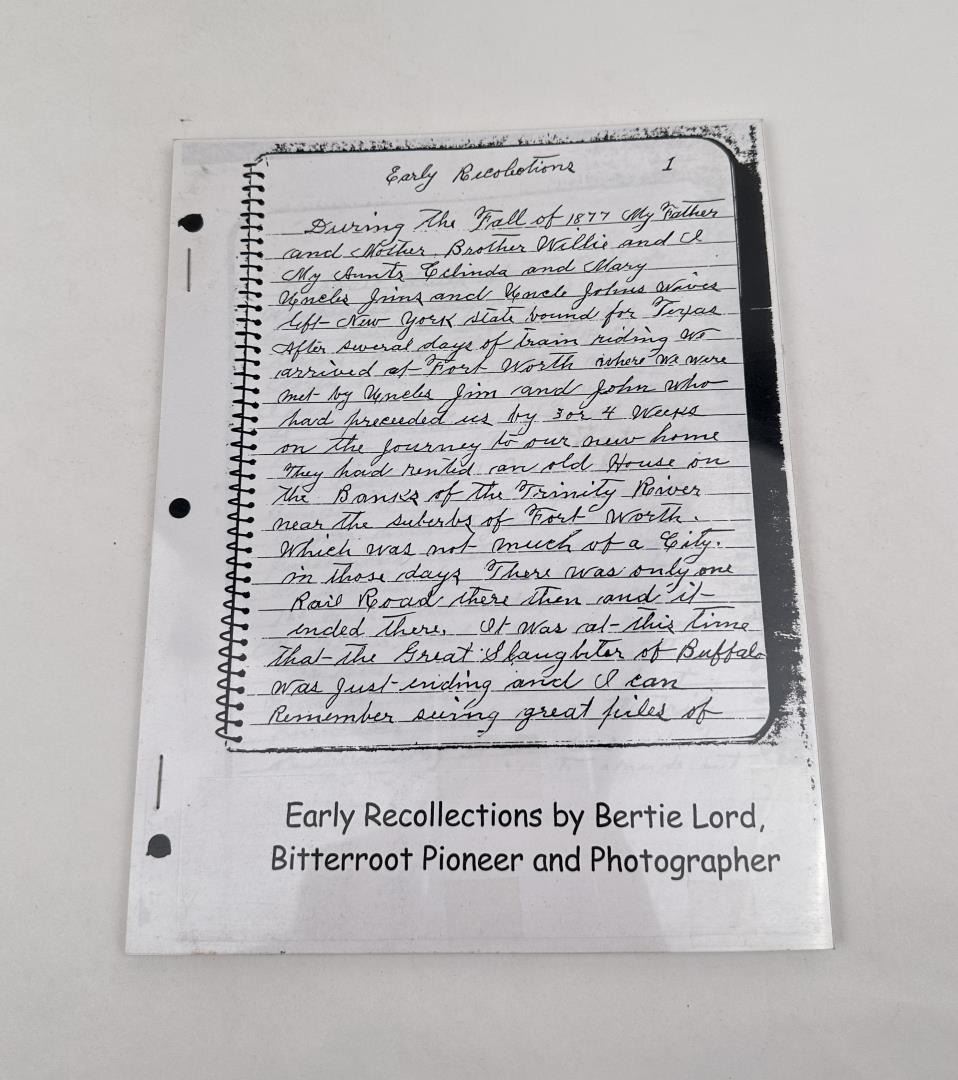 Early Recolections 1
During the Fall of 1877 My Father
and Mother, Brother Willie and I
My Aunts Celinda and Mary
Uncles Jims and Uncle Johns Wives
left New York state bound for Texas
After several days of train riding We
arrived at Fort Worth where We were
met by Uncles Jim and John who
had preceeded us by 3 or 4 Weeks
on the Journey to our new home
They had rented an old House on
the Banks of the Trinity River
near the suberbs of Fort Worth.
Which was not much of a City.
in those days There was only one
Rail Road there then and it
ended there. It was at this time
that the Great Slaughter of Buffalo
was Just ending and I can
Remember seeing great piles of
Early Recollections by Bertie Lord,
Bitterroot Pioneer and Photographer